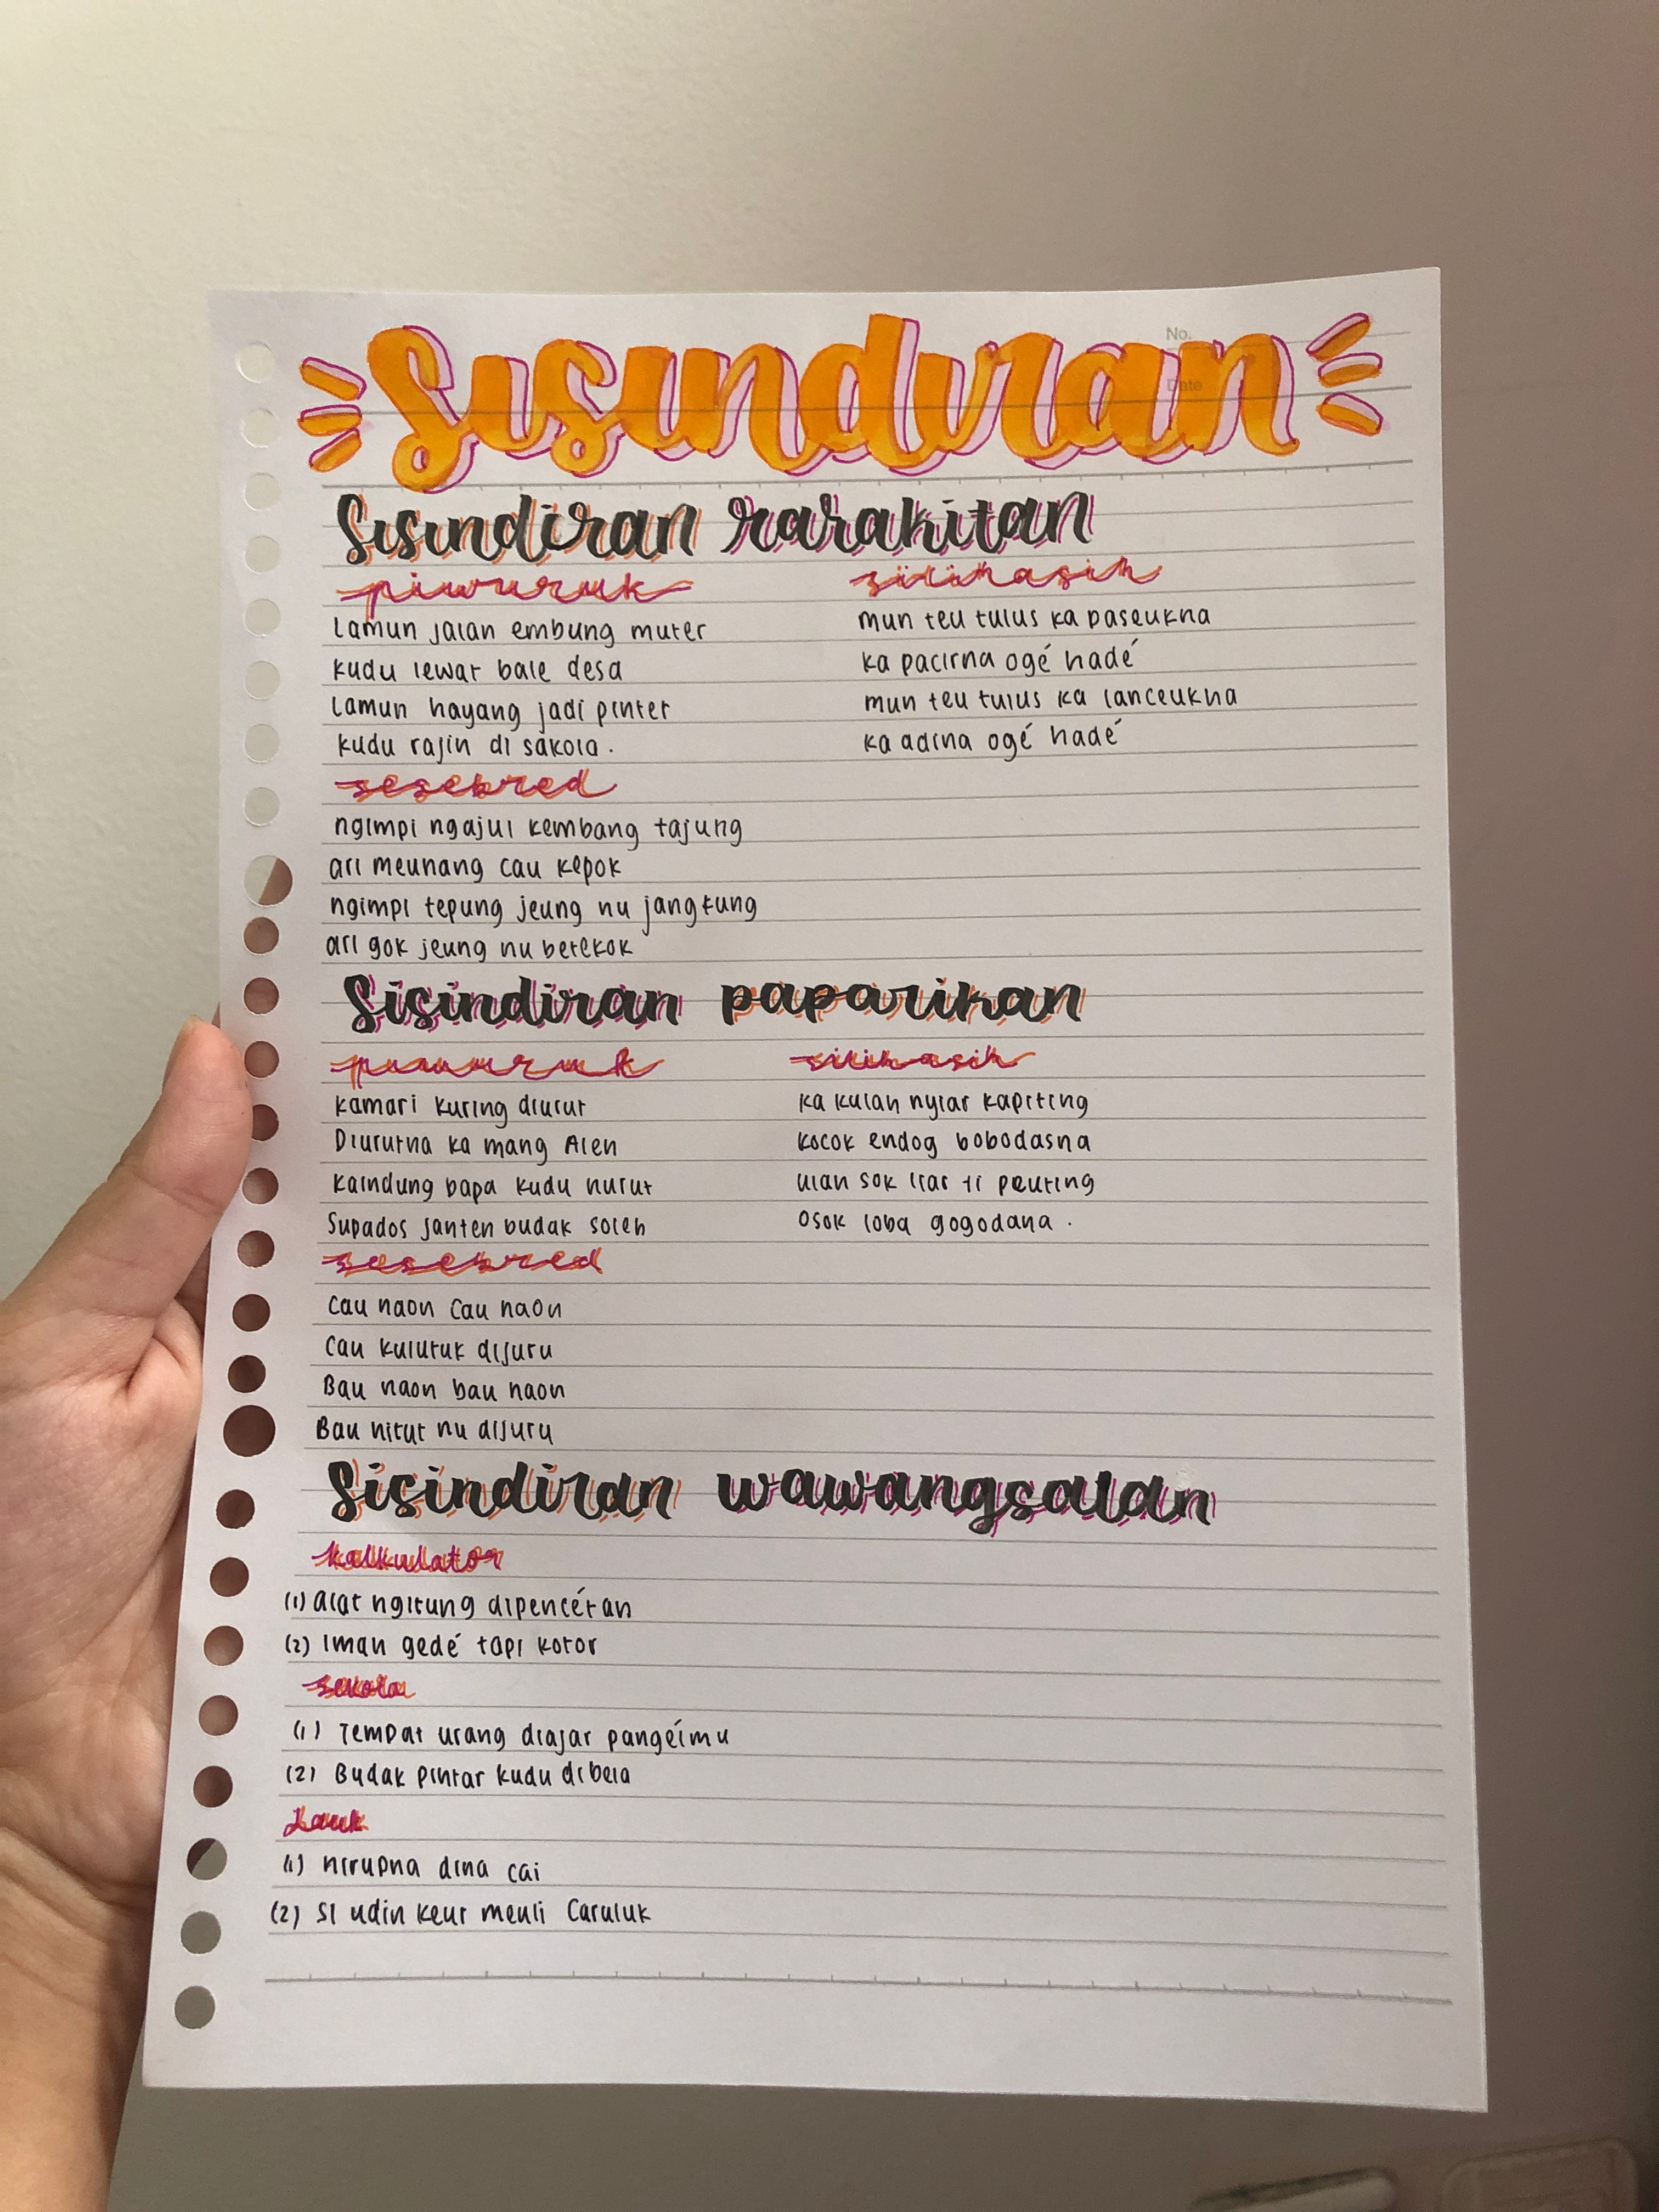 Sisindiran
No.
Date
Sisindiran rarakitan
piwuruk
Lamun jalan embung muter
kudu lewat bale desa
Lamun hayang jadi pinter
kudu rajin di sakola.
silihasih
mun teu tulus ka paseukna
ka pacirna ogé hadé
mun teu tulus ka lanceukna
ka adina ogé hadé
sesebred
ngimpi ngajul kembang tajung
ari meunang cau kepok
ngimpi tepung jeung nu jangkung
ari gok jeung nu betekok
Sisindiran paparikan
piwuruk
kamari kuring diurut
Diururna ka mang Alen
kaindung bapa kudu nurut
Supados janten budak soleh
silihasih
ka kulah nyiar kapiting
kocok endog bobodasna
ulan sok liar ti peuting
osok loba gogodana.
sesebred
Cau naon Cau naon
Cau kulutuk dijuru
Bau naon bau naon
Bau hitut nu dijuru
Sisindiran wawangsalan
kalkulator
(1) alat ngitung dipencétan
(2) Imah gedé tapi kotor
sekola
(1) Tempat urang diajar pangéimu
(2) Budak pintar kudu dibela
Lauk
(1) hirupna dina cai
(2) Si udin keur meuli Caruluk